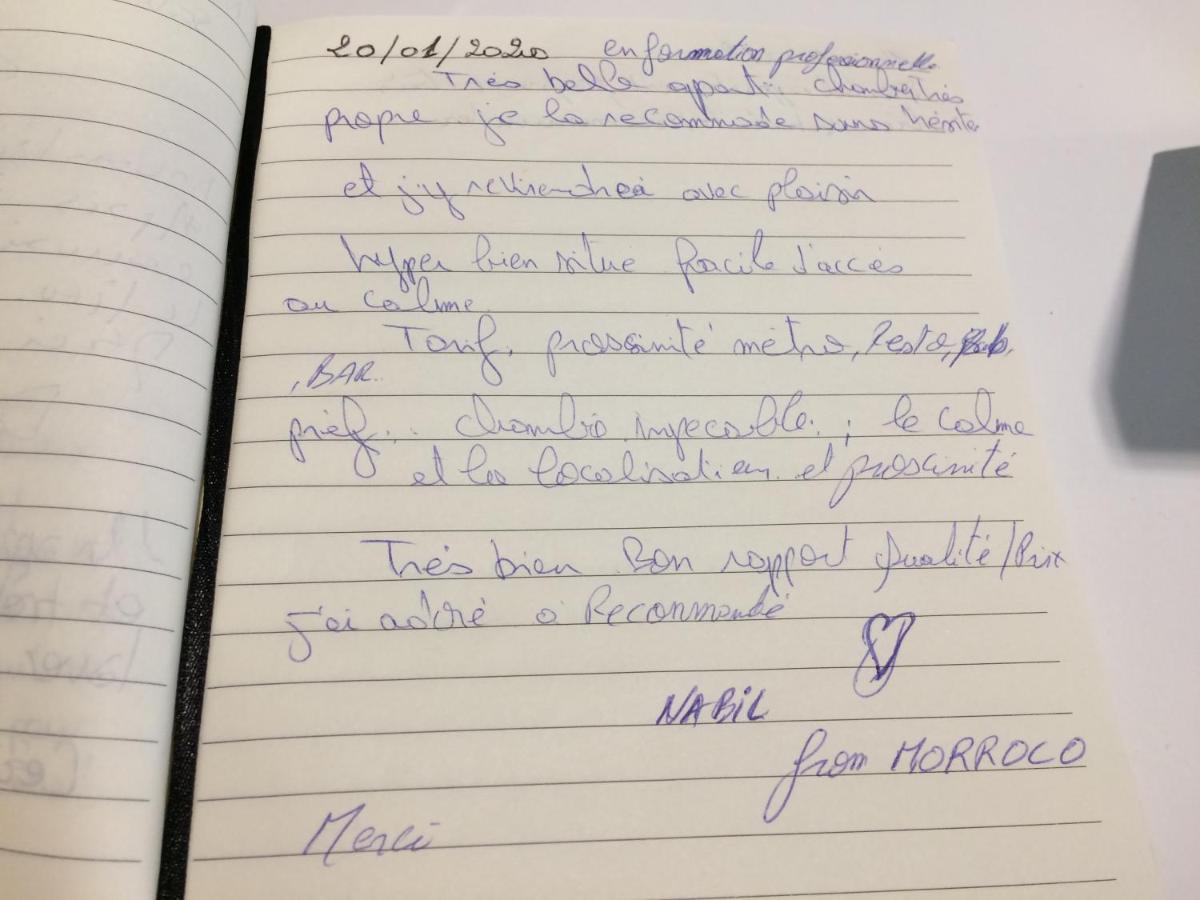 20/01/2020 en formation professionnelle
Très belle apart: chambre très
propre je la recommade sans hésite
et j'y reviendrai avec plaisir
hyper bien situe facile d'accés
au calme
Tarif, proximité métro, Resto,
, BAR.
préf.. chambre impecable. ; le calme
et la localisation et proximité
Très bien Bon rapport Qualité/Prix
j'ai adoré à Recommandé
NABIL
from MORROCO
Merci